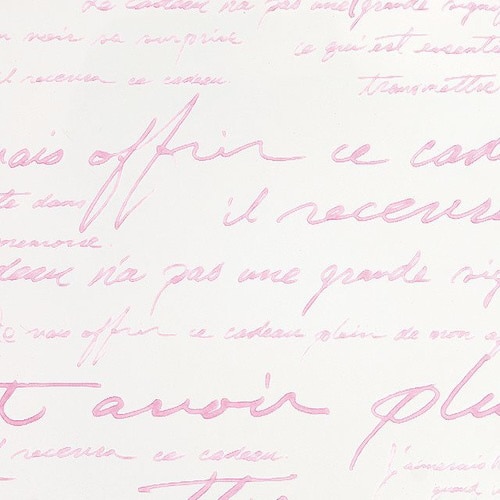 Le cadeau n'a pas une grande signi
voir sa surprise ce qui est essenti
il recevra ce cadeau. transmettre
vais offrir ce cad
te dans il recevra
deau n'a pas une grande sig
vais offrir ce cadeau plein de mon
t avoir plu
il recevra ce cadeau. J'aimerais
quand